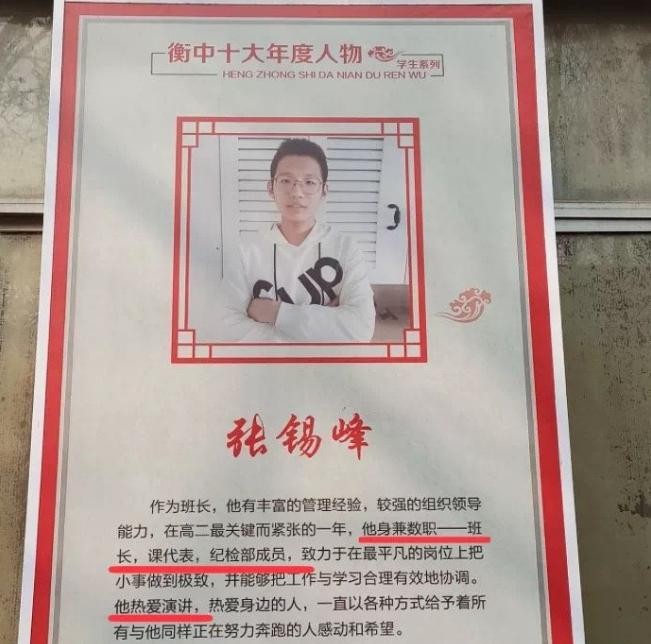 衡中十大年度人物
学生系列
HENG ZHONG SHI DA NIAN DU REN WU
up
张锡峰
作为班长，他有丰富的管理经验，较强的组织领导
能力，在高二最关键而紧张的一年，他身兼数职——班
长，课代表，纪检部成员，致力于在最平凡的岗位上把
小事做到极致，并能够把工作与学习合理有效地协调。
他热爱演讲，热爱身边的人，一直以各种方式给予着所
有与他同样正在努力奔跑的人感动和希望。